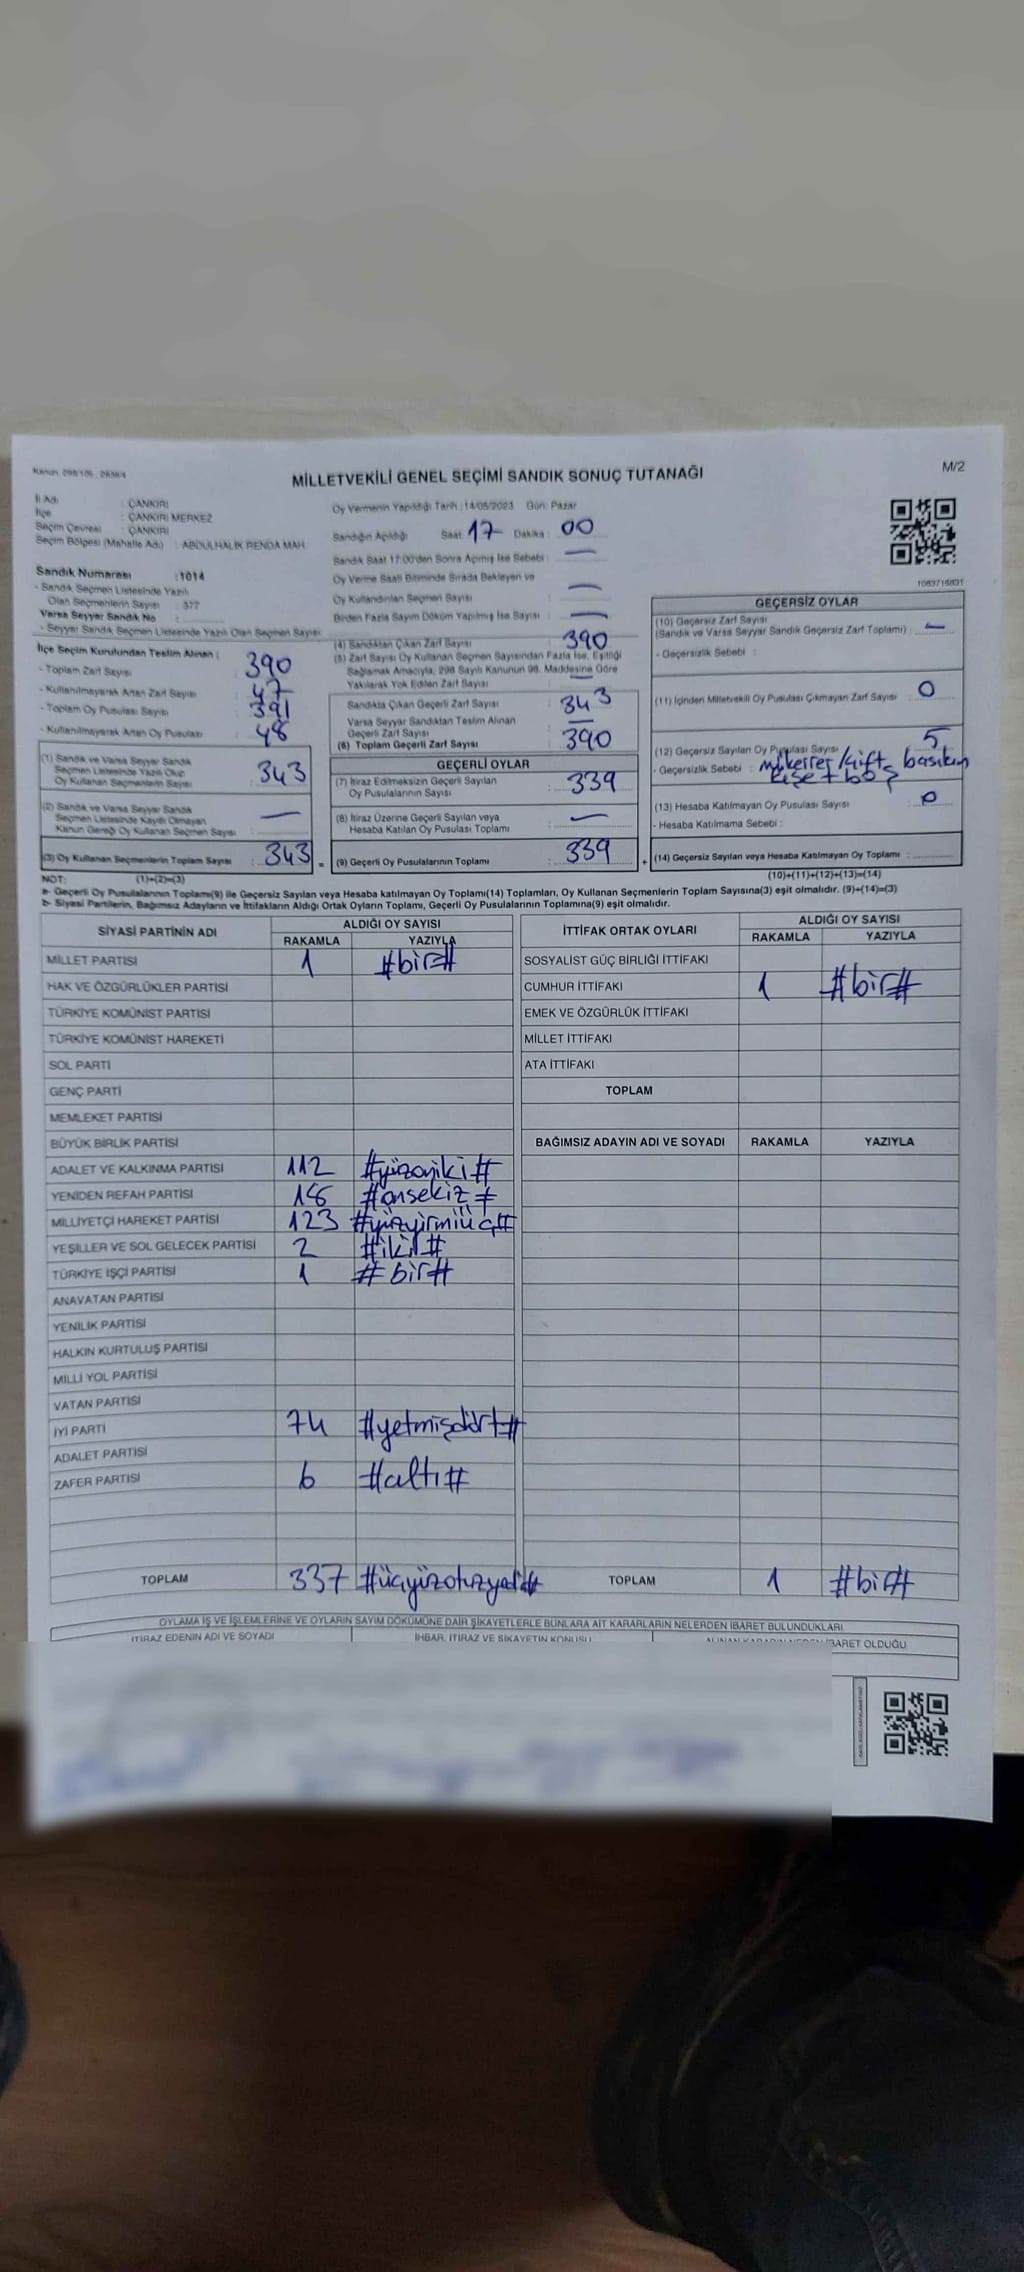 Kanun: 298/105 , 2839/4
M/2
MİLLETVEKİLİ GENEL SEÇİMİ SANDIK SONUÇ TUTANAĞI
İl Adı : ÇANKIRI
İlçe : ÇANKIRI MERKEZ
Seçim Çevresi : ÇANKIRI
Seçim Bölgesi (Mahalle Adı) : ABDULHALİK RENDA MAH.
Sandık Numarası :1014
- Sandık Seçmen Listesinde Yazılı
Olan Seçmenlerin Sayısı : 377
Varsa Seyyar Sandık No :
- Seyyar Sandık Seçmen Listesinde Yazılı Olan Seçmen Sayısı
İlçe Seçim Kurulundan Teslim Alınan ;
- Toplam Zarf Sayısı : 390
- Kullanılmayarak Artan Zarf Sayısı : 47
- Toplam Oy Pusulası Sayısı : 391
- Kullanılmayarak Artan Oy Pusulası : 48
(1) Sandık ve Varsa Seyyar Sandık
Seçmen Listesinde Yazılı Olup
Oy Kullanan Seçmenlerin Sayısı : 343
(2) Sandık ve Varsa Seyyar Sandık
Seçmen Listesinde Kayıtlı Olmayan
Kanun Gereği Oy Kullanan Seçmen Sayısı : —
(3) Oy Kullanan Seçmenlerin Toplam Sayısı : 343 =
Oy Vermenin Yapıldığı Tarih :14/05/2023 Gün: Pazar
Sandığın Açıldığı Saat: 17 Dakika : 00
Sandık Saat 17:00'den Sonra Açılmış İse Sebebi : —
Oy Verme Saati Bitiminde Sırada Bekleyen ve
Oy Kullandırılan Seçmen Sayısı : —
Birden Fazla Sayım Döküm Yapılmış İse Sayısı : —
(4) Sandıktan Çıkan Zarf Sayısı : 390
(5) Zarf Sayısı Oy Kullanan Seçmen Sayısından Fazla İse, Eşitliği
Sağlamak Amacıyla, 298 Sayılı Kanunun 98. Maddesine Göre
Yakılarak Yok Edilen Zarf Sayısı : —
Sandıkta Çıkan Geçerli Zarf Sayısı : 343
Varsa Seyyar Sandıktan Teslim Alınan
Geçerli Zarf Sayısı : —
(6) Toplam Geçerli Zarf Sayısı : 390
GEÇERLİ OYLAR
(7) İtiraz Edilmeksizin Geçerli Sayılan
Oy Pusulalarının Sayısı : 339
(8) İtiraz Üzerine Geçerli Sayılan veya
Hesaba Katılan Oy Pusulası Toplamı : —
(9) Geçerli Oy Pusulalarının Toplamı : 339 +
1083716831
GEÇERSİZ OYLAR
(10) Geçersiz Zarf Sayısı
(Sandık ve Varsa Seyyar Sandık Geçersiz Zarf Toplamı) : —
- Geçersizlik Sebebi :
(11) İçinden Milletvekili Oy Pusulası Çıkmayan Zarf Sayısı : 0
(12) Geçersiz Sayılan Oy Pusulası Sayısı : 5
- Geçersizlik Sebebi : mükerrer/çift basılan
boş
(13) Hesaba Katılmayan Oy Pusulası Sayısı : 0
- Hesaba Katılmama Sebebi :
(14) Geçersiz Sayılan veya Hesaba Katılmayan Oy Toplamı :
NOT: (1)+(2)=(3)
(10)+(11)+(12)+(13)=(14)
a- Geçerli Oy Pusulalarının Toplamı(9) ile Geçersiz Sayılan veya Hesaba katılmayan Oy Toplamı(14) Toplamları, Oy Kullanan Seçmenlerin Toplam Sayısına(3) eşit olmalıdır. (9)+(14)=(3)
b- Siyasi Partilerin, Bağımsız Adayların ve İttifakların Aldığı Ortak Oyların Toplamı, Geçerli Oy Pusulalarının Toplamına(9) eşit olmalıdır.
SİYASİ PARTİNİN ADI ALDIĞI OY SAYISI
RAKAMLA YAZIYLA
MİLLET PARTİSİ 1 #bir#
HAK VE ÖZGÜRLÜKLER PARTİSİ
TÜRKİYE KOMÜNİST PARTİSİ
TÜRKİYE KOMÜNİST HAREKETİ
SOL PARTİ
GENÇ PARTİ
MEMLEKET PARTİSİ
BÜYÜK BİRLİK PARTİSİ
ADALET VE KALKINMA PARTİSİ 112 #yüzoniki#
YENİDEN REFAH PARTİSİ 18 #onsekiz#
MİLLİYETÇİ HAREKET PARTİSİ 123 #yüzyirmiüç#
YEŞİLLER VE SOL GELECEK PARTİSİ 2 #iki#
TÜRKİYE İŞÇİ PARTİSİ 1 #bir#
ANAVATAN PARTİSİ
YENİLİK PARTİSİ
HALKIN KURTULUŞ PARTİSİ
MİLLİ YOL PARTİSİ
VATAN PARTİSİ
İYİ PARTİ 74 #yetmişdört#
ADALET PARTİSİ
ZAFER PARTİSİ 6 #altı#
TOPLAM 337 #üçyüzotuzyedi#
İTTİFAK ORTAK OYLARI ALDIĞI OY SAYISI
RAKAMLA YAZIYLA
SOSYALİST GÜÇ BİRLİĞİ İTTİFAKI
CUMHUR İTTİFAKI 1 #bir#
EMEK VE ÖZGÜRLÜK İTTİFAKI
MİLLET İTTİFAKI
ATA İTTİFAKI
TOPLAM
BAĞIMSIZ ADAYIN ADI VE SOYADI RAKAMLA YAZIYLA
TOPLAM 1 #bir#
OYLAMA İŞ VE İŞLEMLERİNE VE OYLARIN SAYIM DÖKÜMÜNE DAİR ŞİKAYETLERLE BUNLARA AİT KARARLARIN NELERDEN İBARET BULUNDUKLARI
İTİRAZ EDENİN ADI VE SOYADI İHBAR, İTİRAZ VE ŞİKAYETİN KONUSU ALINAN KARARIN NEDEN İBARET OLDUĞU